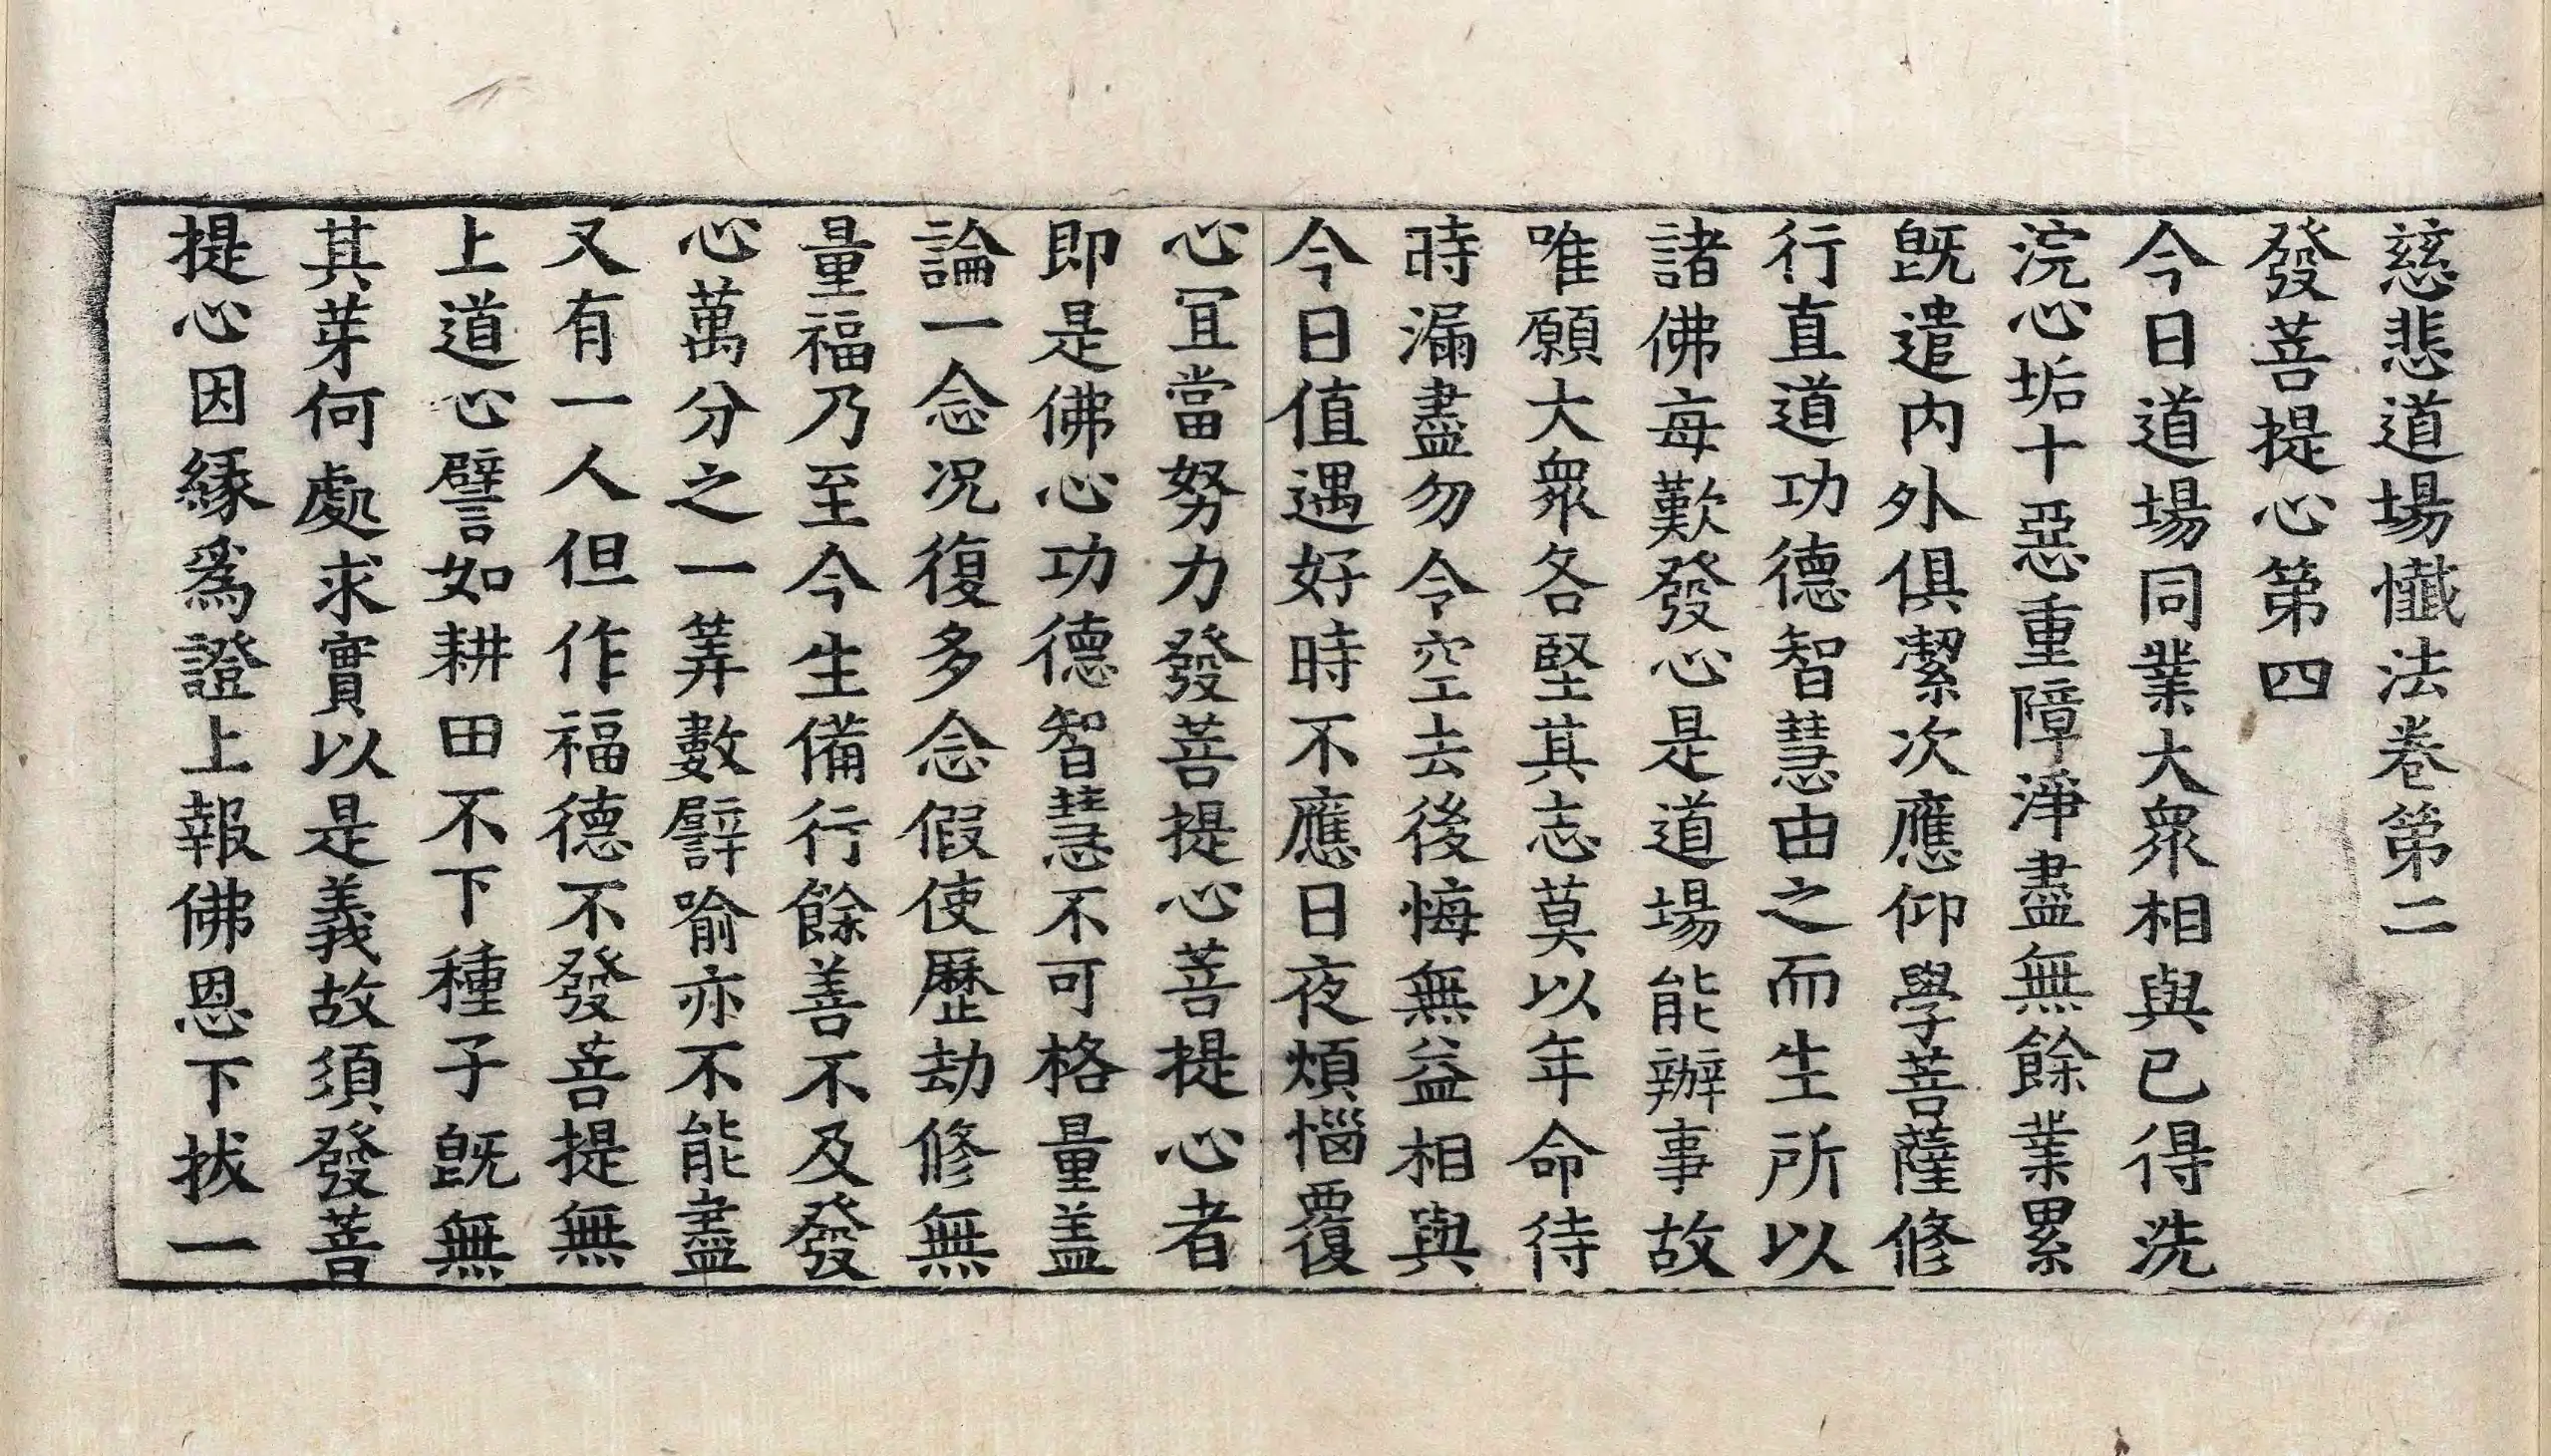 慈悲道場懺法卷第二
發菩提心第四
今日道場同業大衆相與已得洗
浣心垢十惡重障淨盡無餘業累
旣遣內外俱潔次應仰學菩薩修
行直道功德智慧由之而生所以
諸佛每歎發心是道場能辦事故
唯願大衆各堅其志莫以年命待
時漏盡勿令空去後悔無益相與
今日值遇好時不應日夜煩惱覆
心冝當努力發菩提心菩提心者
即是佛心功德智慧不可格量盖
論一念况復多念假使歷劫修無
量福乃至今生備行餘善不及發
心萬分之一筭數譬喻亦不能盡
又有一人但作福德不發菩提無
上道心譬如耕田不下種子旣無
其芽何處求實以是義故須發菩
提心因緣爲證上報佛恩下拔一